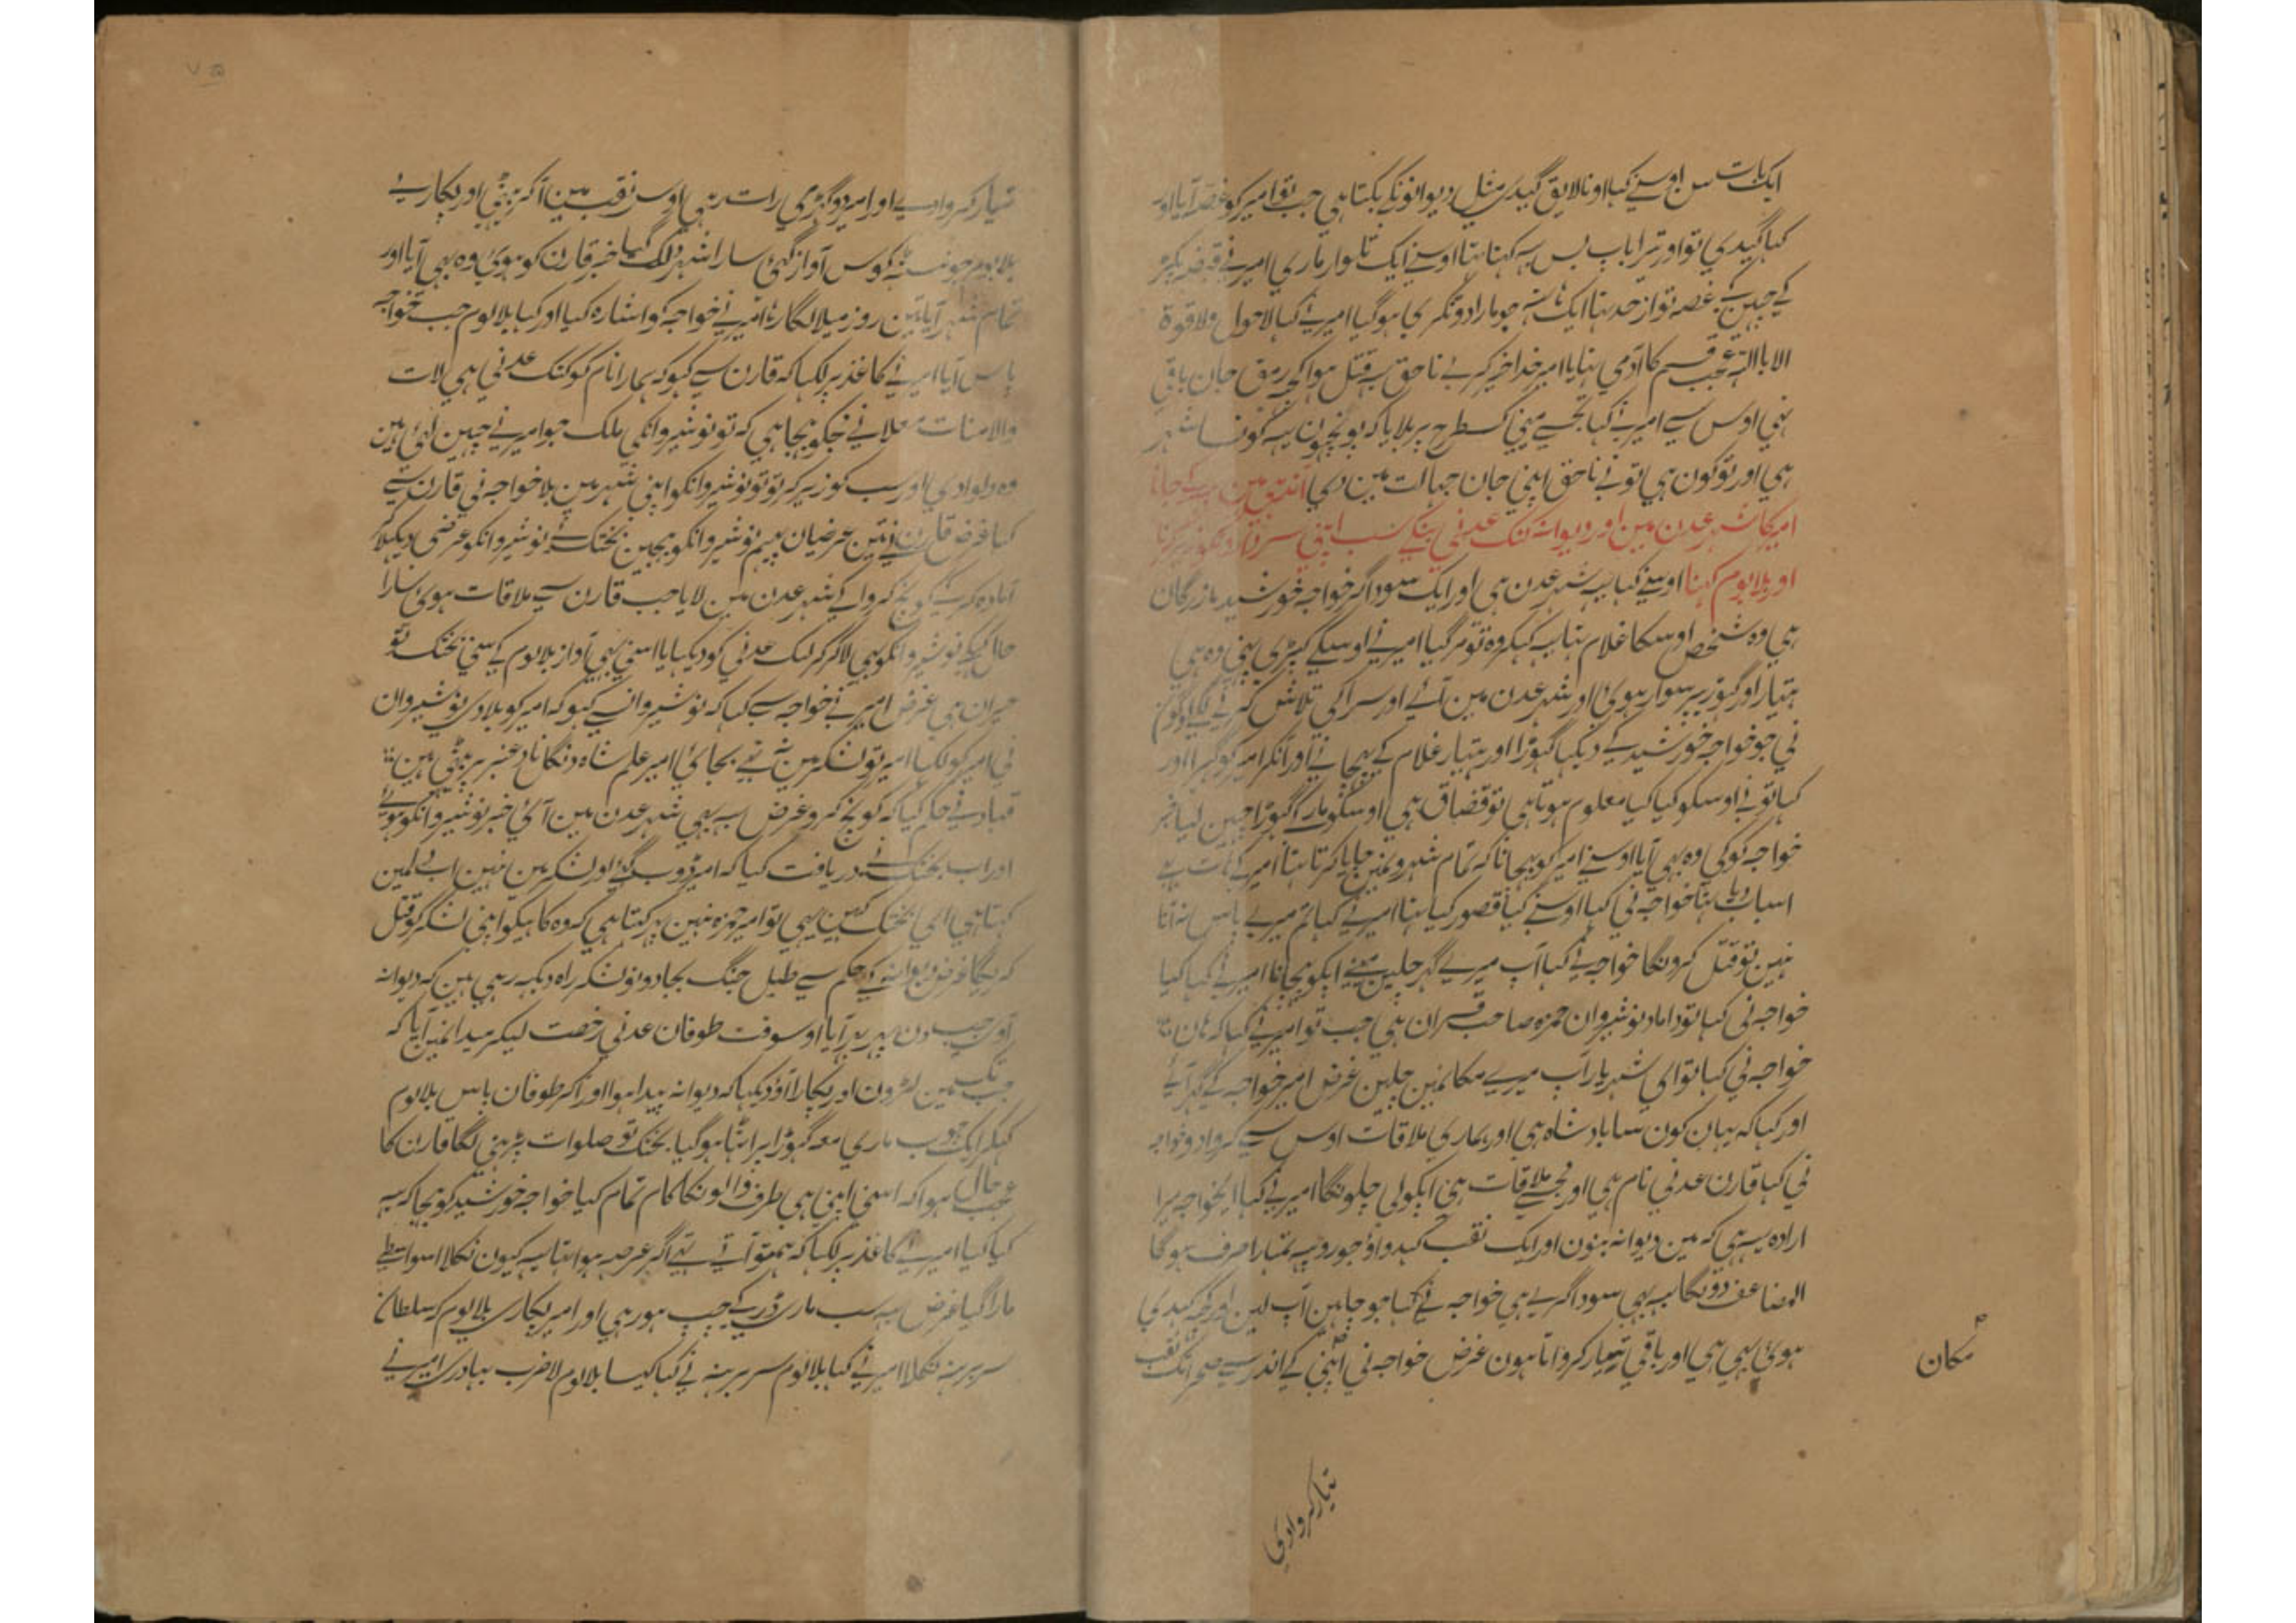 ایک بات سن اوسنے کہا او نالایق گیدی مثل دیوانونکے بکتا ہی جب تو امیر کو غصہ آیا اور
کہا گیدی تو اور تیرا باپ بس یہ کہنا تہا اوسنے ایک تلوار ماری امیر نے قبضہ پکڑ
کے چہین لی غصہ تو از حد تہا ایک ہاتہہ جو مارا دو ٹکری ہو گیا امیر نے کہا لاحول ولا قوة
الا باللہ عجب قسم کا آدمی تہا یا امیر خدا خیر کرے ناحق یہ قتل ہوا کچہہ رمق جان باقی
تہی اوس سے امیر نے کہا تجہسے مینی کس طرح پر بلایا کہ پونچہون یہ کونسا شہر
ہی اور تو کون ہی تو نے ناحق اپنی جان جہالت مین دی جانا
امیر کا شہر عدن مین اور دیوانہ کنک عدنی بنکے سب اپنی
اور بلا بوم کہنا اوسنے کہا یہ شہر عدن ہی اور ایک سوداگر خواجہ خورشید بازرگان
ہی وہ شخص اوسکا غلام تہا یہ کہکر وہ تو مر گیا امیر نے اوسیکے کپڑی پہنی وہ ہی
ہتیار اور گہوڑے پر سوار ہوئی اور شہر عدن مین آئے اور سرا کی تلاش کرنے لگے لوگون
نی جو خواجہ خورشید کے دیکہا گہوڑا اور ہتیار غلام کے پہچانے اور آنکر امیر کو گہیرا اور
کہا تو نے اوسکو کیا کیا معلوم ہوتا ہی تو قضاق ہی اوسکو مار کے گہوڑا چہین لیا خبر
خواجہ کو کی وہ بہی آیا اوسنے امیر کو پہچانا کہ تمام شہرونمین جایا کرتا تہا امیر کے ہات سے
اسباب دیا تہا خواجہ نی کہا اوسنے کیا قصور کیا تہا امیر نے کہا تم میرے پاس نہ آنا
نہین تو قتل کرونگا خواجہ نے کہا آپ میرے گہر چلین مینے آپکو پہچانا امیر نے کہا کیا
خواجہ نی کہا تو داماد نوشیروان حمزہ صاحب قران ہی جب تو امیر نے کہا کہ ہان
خواجہ نی کہا تو ای شہریار آپ میرے مکانمین چلین غرض امیر خواجہ کے گہر آئے
اور کہا کہ یہان کون سا بادشاہ ہی اور ہماری ملاقات اوس سے کروادو خواجہ
نی کہا قارن عدنی نام ہی اور مجہسے ملاقات ہی آپکو لی چلونگا امیر نے کہا ایخواجہ میرا
ارادہ یہ ہی کہ مین دیوانہ بنون اور ایک نقب کہدواؤ جو روپیہ تمہارا صرف ہوگا
المضاعف دونگا یہ بہی سوداگر ہے ہی خواجہ نے کہا جو چاہین آپ لین اور کچہہ کہدی
ہوئی بہی ہی اور باقی تیار کرواتا ہون غرض خواجہ نی اپنی کے اندر سے صحرا تک نقب
مکان
تیار کروادی
تیار کروادے اور امیر دو گہڑی رات رہی اوس نقب مین آکر بیٹہی اور پکارے
بلا بوم جو نسٹہہ کوس آواز گہی سارا شہر ہل گیا خبر قارن کو ہوئی وہ بہی آیا اور
تمام شہر آیا تین روز میلا لگا رہا امیر نے خواجہ کو اشارہ کیا اور کہا بلا بوم جب خواجہ
پاس آیا امیر نے کاغذ پر لکہا کہ قارن سے کہو کہ ہمارا نام کو کنک عدنی ہی لات
والامنات معلا نے مجکو بہیجا ہی کہ تو نوشیروانکی ملک جو امیر نے چہین لئی ہین
وہ دلوا دی اور سب کو زیر کر تو تو نوشیروانکو اپنی شہر مین بلا خواجہ نی قارن سے
کہا غرض قارن نے تین عرضیان پیہم نوشیروانکو بہیجین بختک نے نوشیروانکو عرضی دیکہلا کر
آمادہ کرکے کونچ کروا کے شہر عدن مین لایا جب قارن سے ملاقات ہوئی سارا
حال کہکے نوشیروانکو بہی لاکر کنک عدنی کو دیکہایا اسنی بہی آواز بلا بوم کے سنی بختک تو
حیران ہی غرض امیر نے خواجہ سے کہا کہ نوشیروانسے کہو کہ امیر کو بلادی نوشیروان
نی امیر کو لکہا امیر تو لشکر مین نہ تہے بجائی امیر علم شاہ دنگل ناد عنبر پر بیٹہی ہین
قباد نے حکم کیا کہ کونچ کرو غرض یہ بہی شہر عدن مین آئی خبر نوشیروانکو ہوئے
اور اب بختک نے دریافت کیا کہ امیر ڈوب گئے اور لشکر مین نہین اپنے دلمین
کہتا ہی ای بختک کہین یہی تو امیر حمزہ نہین پہر کہتا ہی کہ وہ کاہیکو اپنی لشکر کو قتل
کریگا غرض دیوانہ کے حکم سے طبل جنگ بجا دونو لشکر راہ دیکہہ رہی ہین کہ دیوانہ
آوی جب دن پہر بہر آیا اوسوقت طوفان عدنی رخصت لیکر میدانمین آیا کہ
جب تک مین لڑون اور پکارا آؤ دیکہا کہ دیوانہ پیدا ہوا اور آکر طوفان پاس بلا بوم
کہکر ایک چوب ماری معہ گہوڑا پراٹہا ہو گیا بختک تو صلوات پڑہنی لگا قارن کا
عجب حال ہوا کہ اسنی اپنی ہی طرف والونکا کام تمام کیا خواجہ خورشید کو بہیجا کہ یہ
کیا کیا امیر نے کاغذ پر لکہا کہ ہم تو آتے تہے اگر عرصہ ہوا تہا یہ کیون نکلا اسواسطے
مارا گیا غرض یہ سب ماری ڈر کے چپ ہو رہی اور امیر پکاری بلا بوم کہ سلطان
سر برہنہ نکلا امیر نے کہا بلا بوم سر برہنہ نے کہا کیسا بلا بوم لا ضرب بہادری امیر نے